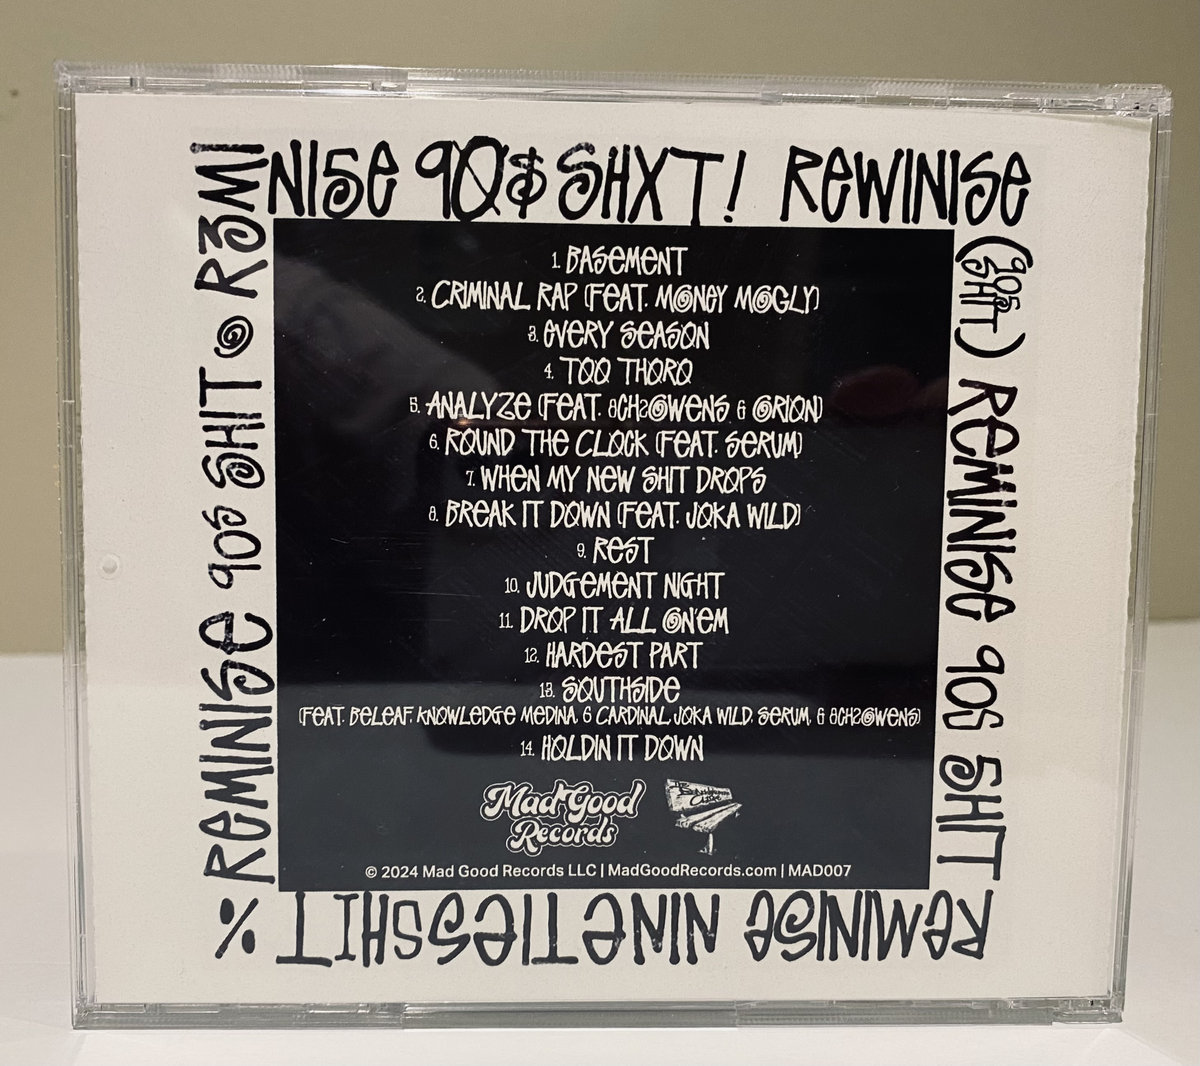 R3MI
NI5E 90$ SHXT! REWINISE
(90s SHIT) REMINISE 90S 5HIT
REMINISE NINETIESSHIT %
REMINISE 90s SHIT
1. BASEMENT
2. CRIMINAL RAP (FEAT. MONEY MOGLY)
3. EVERY SEASON
4. TOO THORO
5. ANALYZE (FEAT. 8CH2OWENS & ORION)
6. ROUND THE CLOCK (FEAT. SERUM)
7. WHEN MY NEW SHIT DROPS
8. BREAK IT DOWN (FEAT. JOKA WILD)
9. REST
10. JUDGEMENT NIGHT
11. DROP IT ALL ON'EM
12. HARDEST PART
13. SOUTHSIDE
(FEAT. BELEAF, KNOWLEDGE MEDINA, & CARDINAL, JOKA WILD, SERUM, & 8CH2OWENS)
14. HOLDIN IT DOWN
Mad Good
Records
© 2024 Mad Good Records LLC | MadGoodRecords.com | MAD007